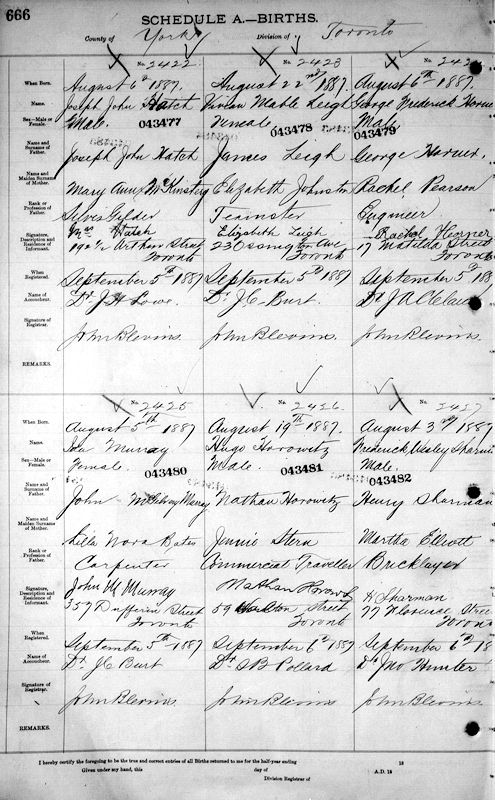 666
SCHEDULE A.—BIRTHS.
County of York Division of Toronto
No. 2422 No. 2423 No. 242
When Born. August 6th 1887. August 22nd 1887. August 6th 1887.
Name. Joseph John Hatch Vivian Mable Leigh George Frederick
Sex—Male or Female. Male. Female Male
043477 043478 043479
Name and Surname of Father. Joseph John Hatch James Leigh George Horner.
Name and Maiden Surname of Mother. Mary Ann McKinstry Elizabeth Johnston Rachel Pearson
Rank or Profession of Father. Silver Gilder Teamster Engineer
Signature, Description and Residence of Informant. Mrs Hatch Elizabeth Leigh Rachel Horner
192½ Arthur Street 230 Ossington Ave 17 Matilda Street
Toronto Toronto Toronto
When Registered. September 5th 1887 September 5th 1887 September 5th 188
Name of Accoucheur. Dr J H Lowe. Dr J C Burt. Dr J A
Signature of Registrar. John Blevins John Blevins. John Blevins.
REMARKS.
No. 2425 No. 2426 No. 2427
When Born. August 5th 1887 August 19th 1887. August 3rd 1887
Name. Ida Murray Hugo Horowitz Frederick Wesley Sharman
Sex—Male or Female. Female. Male. Male.
043480 043481 043482
Name and Surname of Father. John Murray Nathan Horowitz Henry Sharman
Name and Maiden Surname of Mother. Lilla Nora Bates Jennie Stern Martha Elliott
Rank or Profession of Father. Carpenter Commercial Traveller Bricklayer
Signature, Description and Residence of Informant. John M Murray Nathan Horowitz H Sharman
357 Dufferin Street 59 Street 77 Florence Stree
Toronto Toronto Toronto
When Registered. September 5th 1887 September 6th 1887 September 6th 18
Name of Accoucheur. Dr J C Burt Dr S B Pollard Dr Jno Hunter
Signature of Registrar. John Blevins John Blevins John Blevins
REMARKS.
I hereby certify the foregoing to be the true and correct entries of all Births returned to me for the half-year ending 18
Given under my hand, this day of A.D. 18
Division Registrar of